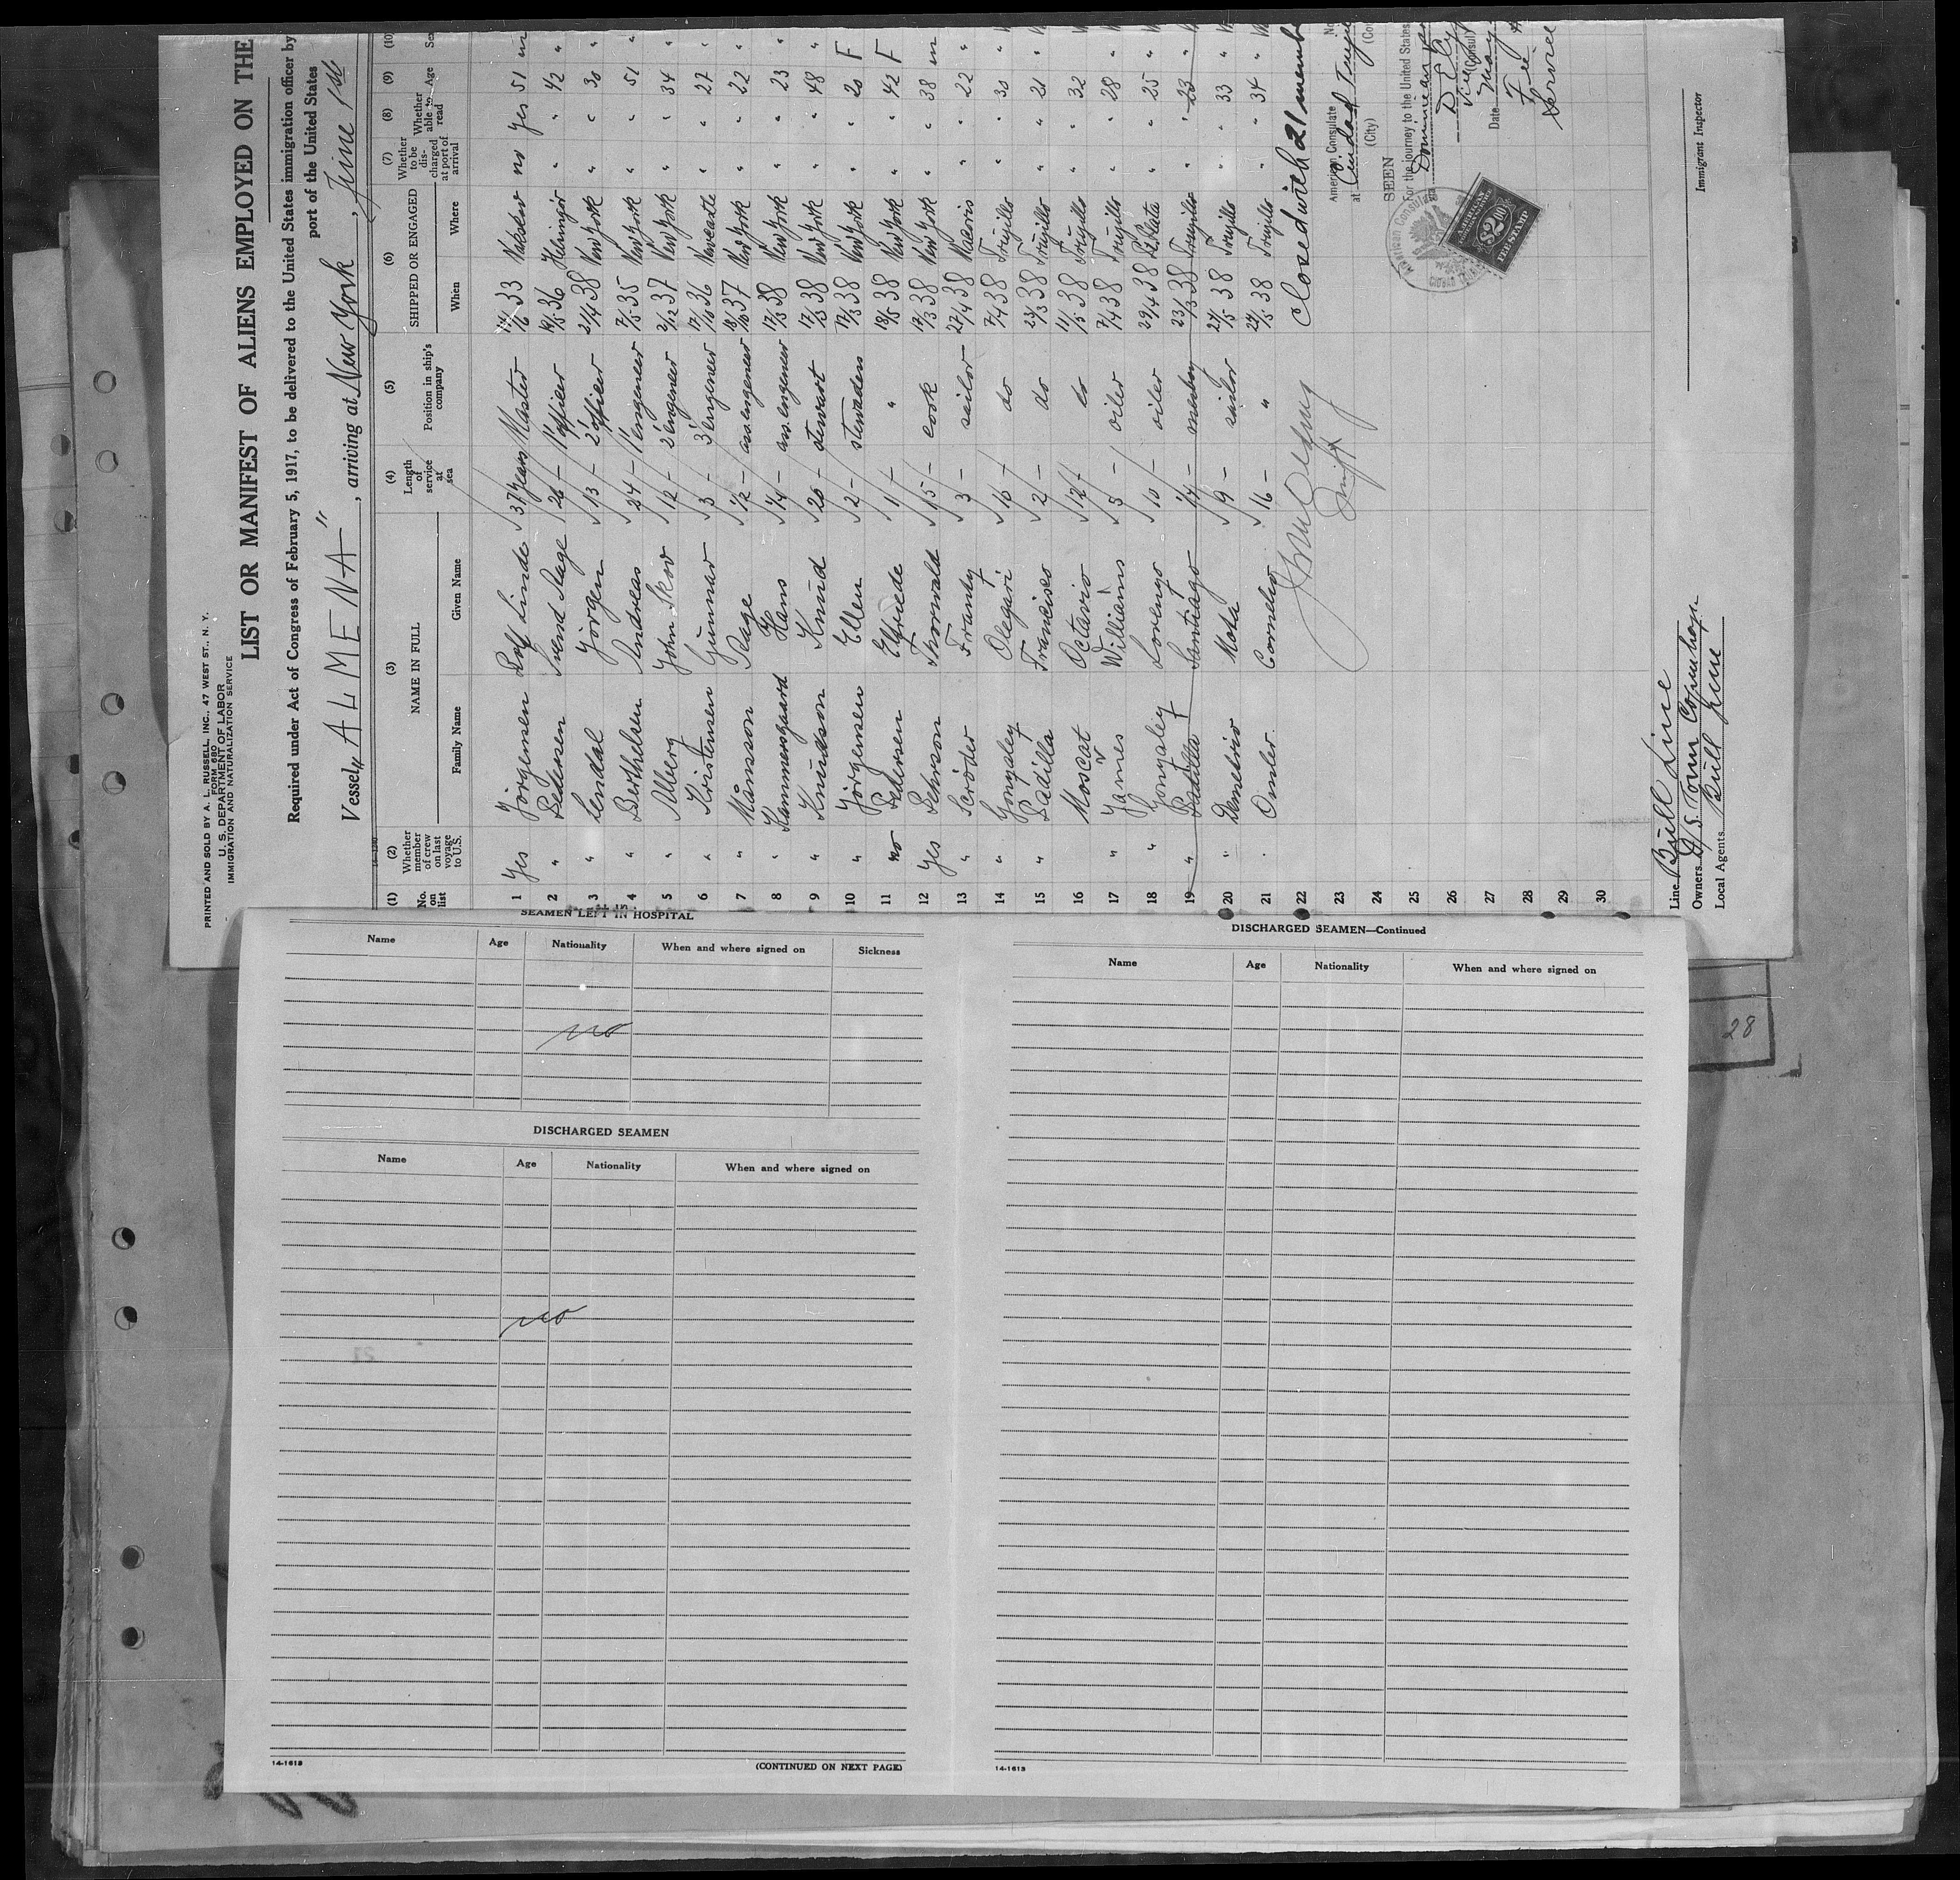 PRINTED AND SOLD BY A. L. RUSSELL, INC., 47 WEST ST., N. Y.
FORM 680
U. S. DEPARTMENT OF LABOR
IMMIGRATION AND NATURALIZATION SERVICE
LIST OR MANIFEST OF ALIENS EMPLOYED ON THE
Required under Act of Congress of February 5, 1917, to be delivered to the United States immigration officer by
port of the United States
Vessel "ALMENA", arriving at New York, June
(1) No. on list (2) Whether member of crew on last voyage to U.S. (3) NAME IN FULL Family Name Given Name (4) Length of service at sea (5) Position in ship's company (6) SHIPPED OR ENGAGED When Where (7) Whether to be discharged at port of arrival (8) Whether able to read (9) Age (10) Sex
1 Yes Jörgensen Rolf Linde 37 years Master 33 no Yes 51 m
2 " Pedersen Svend Aage 26 - 1' officer 36 " " 42 "
3 " Jörgen 13 - 2' officer 21/4 38 New York " " 30 "
4 " Berthelsen Andreas 24 - 1' engeneer 7/5 35 New York " " 51 "
5 " John Skov 12 - 2' engeneer 2/12 37 New York " " 34 "
6 " Kristensen Gunnar 3 - 3' engeneer 17/10 36 Newcastle " " 27 "
7 " Månsson Aage 1/2 - ass. engeneer 18/10 37 New York " " 22 "
8 " Kammersgaard Hans 1/4 - ass. engeneer 17/3 38 New York " " 23 "
9 " Knudson Knud 20 - stewart 17/3 38 New York " " 48 "
10 " Jörgensen Ellen 2 - stewardess 17/3 38 New York " " 20 F
11 no Pedersen Elfriede 1 - " 13/5 38 New York " " 42 F
12 Yes Thorwald 15 - cook 17/3 38 New York " " 38 m
13 " Scröder Frantz 3 - sailor 27/4 38 Macoris " " 22 "
14 " Gonzalez Olegari 10 - do 7/4 38 Trujillo " " 30 "
15 " Padilla Francisco 2 - do 23/3 38 Trujillo " " 21 "
16 Moscat Octavio 12 - do 11/5 38 Trujillo " " 32 "
17 " James Williams 5 - oiler 7/4 38 Trujillo " " 28 "
18 " Gonzalez Lorenzo 10 - oiler 29/4 38 Pt. Plata " " 25 "
19 " Padilla Santiago 14 - messboy 23/3 38 Trujillo " " 23 "
20 " Demetrio Mota 9 - sailor 24/5 38 Trujillo " " 33 "
21 " Cornelio 16 - " 24/5 38 Trujillo " " 34 "
22 Closed with 21 memb
23
24
25
26
27
28
29
30
American Consulate No.
at Ciudad Truji
(City) (Co
SEEN
For the journey to the United States
Dominican
(Consul)
Date May
Fee
Service
American Consulate
AMERICAN
$2.00
FEE STAMP
Line Bull Line
Owners D/S. Torm Copenhagen
Local Agents Bull Line
Immigrant Inspector
SEAMEN LEFT IN HOSPITAL
Name Age Nationality When and where signed on Sickness
no
DISCHARGED SEAMEN
Name Age Nationality When and where signed on
no
14-1613 (CONTINUED ON NEXT PAGE)
DISCHARGED SEAMEN—Continued
Name Age Nationality When and where signed on
14-1613
28